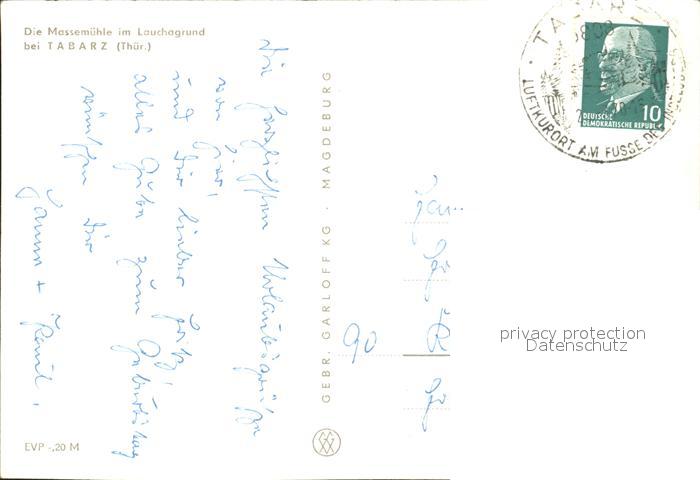 Die Massemühle im Lauchagrund
bei TABARZ (Thür.)
Die herzlichsten Urlaubsgrüße
von hier,
und Dir lieber Fritz,
alles Gute zum Geburtstag
wünschen Dir
Hanna +
EVP -,20 M
GEBR. GARLOFF KG · MAGDEBURG
TABARZ
5808
LUFTKURORT AM FUSSE DES INSELSBERGES
DEUTSCHE
DEMOKRATISCHE REPUBLIK
10
90
privacy protection
Datenschutz